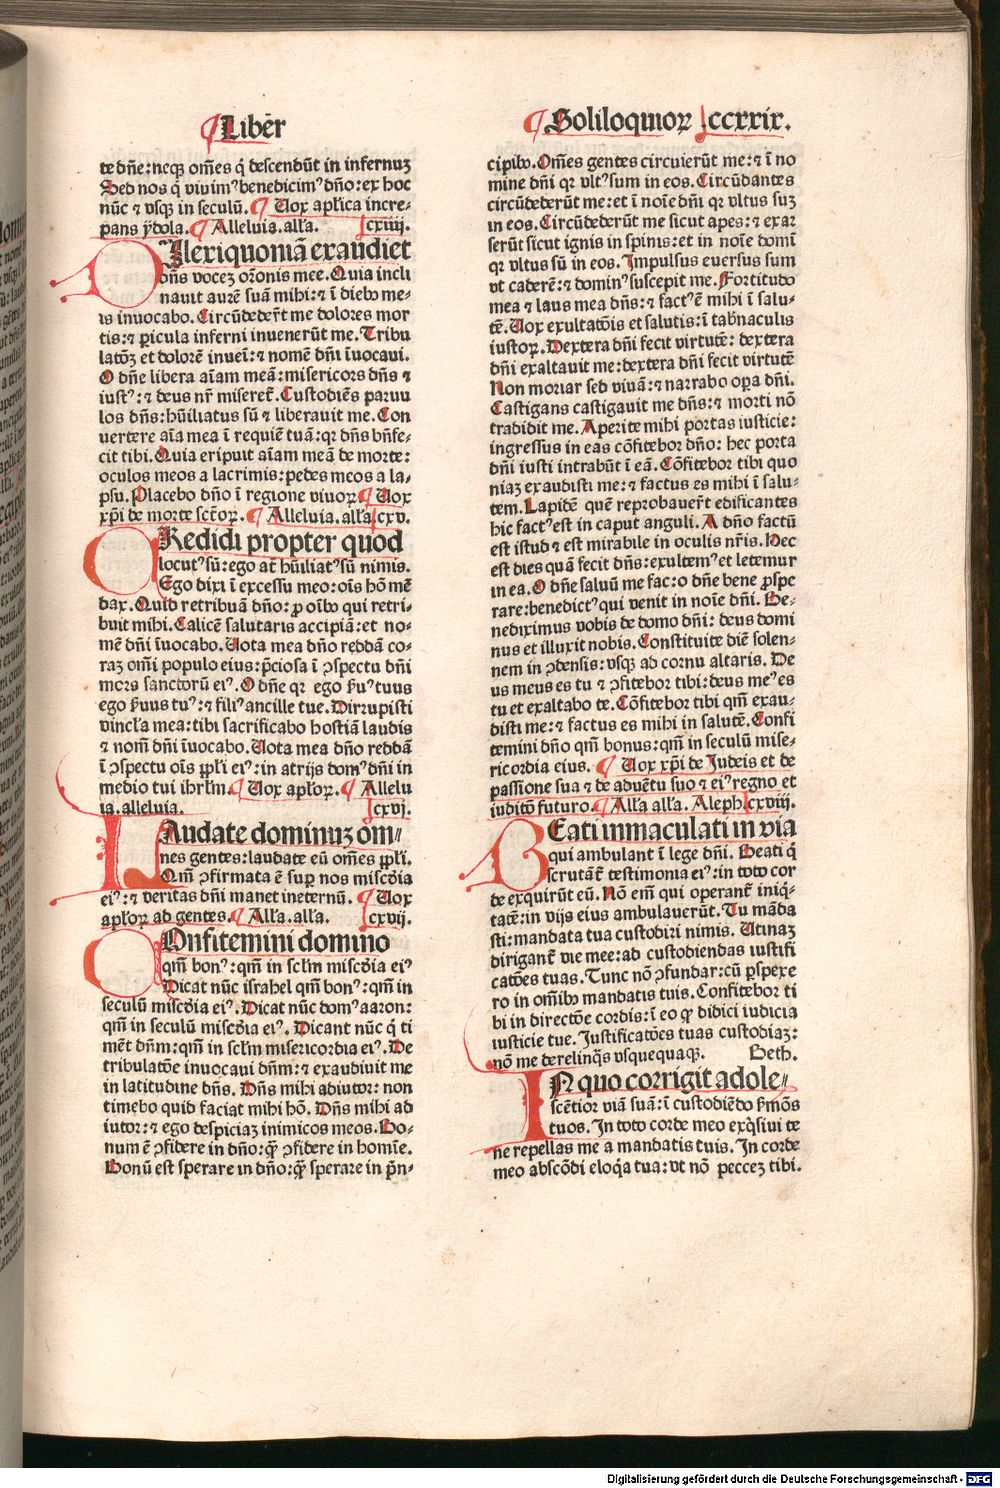 ¶ Liber̄
te dn̄e: neqꝫ om̄es q̇ descendūt in infernuꝫ
Sed nos q̇ viuimꝰ benedicimꝰ dn̄o: ex hoc
nūc ⁊ vsqꝫ in seculū. ¶ Uox apl̄ica incre-
pans ẏdola. ¶ Alleluia. all̄a. cxiiij.
Ilexi quoniā exaudiet
dn̄s voceꝫ or̄onis mee. Quia incli
nauit aurē suā mihi: ⁊ ī diebꝰ me-
is inuocabo. Circūdeder̄t me dolores mor
tis: ⁊ ꝑicula inferni inuenerūt me. Tribu
latōꝫ et dolorē inueī: ⁊ nomē dn̄i īuocaui.
O dn̄e libera aīam meā: misericors dn̄s ⁊
iustꝰ: ⁊ deus nr̄ miseret̄. Custodiēs paruu
los dn̄s: hūiliatus sū ⁊ liberauit me. Con
uertere aīa mea ī requiē tuā: qꝛ dn̄s bn̄fe-
cit tibi. Quia eripuit aīam meā de morte:
oculos meos a lacrimis: pedes meos a la-
psu. Placebo dn̄o ī regione viuoꝝ ¶ Uox
xp̄i de morte sct̄oꝝ. ¶ Alleluia. all̄a cxv.
Redidi propter quod
locutꝰ sū: ego at̄ hūiliatꝰ sū nimis.
Ego dixi ī excessu meo: oīs hō mē
dax. Quid retribuā dn̄o: ꝓ oībꝰ qui retri-
buit mihi. Calicē salutaris accipiā: et no-
mē dn̄i īuocabo. Uota mea dn̄o reddā co-
raꝫ om̄i populo eius: p̄ciosa ī ↄspectu dn̄i
mors sanctorū eiꝰ. O dn̄e qꝛ ego ẜuꝰ tuus
ego ẜuus tuꝰ: ⁊ filiꝰ ancille tue. Dirrupisti
vincl̄a mea: tibi sacrificabo hostiā laudis
⁊ nom̄ dn̄i īuocabo. Uota mea dn̄o reddā
ī ↄspectu oīs ppl̄i eiꝰ: in atrijs domꝰ dn̄i in
medio tui ihrl̄m. ¶ Uox apl̄oꝝ. ¶ Allelu
ia. alleluia. cxvj.
Audate dominuꝫ om-
nes gentes: laudate eū om̄es ppl̄i.
Qm̄ ↄfirmata ē suꝑ nos mis̄cdia
eiꝰ: ⁊ veritas dn̄i manet ineternū. ¶ Uox
apl̄oꝝ ad gentes. ¶ All̄a. all̄a. cxvij.
Onfitemini domino
qm̄ bonꝰ: qm̄ in scl̄m mis̄cdia eiꝰ
Dicat nūc israhel qm̄ bonꝰ: qm̄ in
seculū mis̄cdia eiꝰ. Dicat nūc domꝰ aaron:
qm̄ in seculū mis̄cdia eiꝰ. Dicant nūc q̇ ti
mēt dn̄m: qm̄ in scl̄m misericordia eiꝰ. De
tribulatōe inuocaui dn̄m: ⁊ exaudiuit me
in latitudine dn̄s. Dn̄s mihi adiutor: non
timebo quid faciat mihi hō. Dn̄s mihi ad
iutor: ⁊ ego despiciaꝫ inimicos meos. Bo-
num ē ↄfidere in dn̄o: qꝫ̄ ↄfidere in homīe.
Bonū est sperare in dn̄o: qꝫ̄ sperare in p̄n-
¶ Soliloquioꝝ ccxxix.
cipibꝰ. Om̄es gentes circuierūt me: ⁊ ī no
mine dn̄i qꝛ vltꝰ sum in eos. Circūdantes
circūdederūt me: et ī noīe dn̄i qꝛ vltus suꝫ
in eos. Circūdederūt me sicut apes: ⁊ exar
serūt sicut ignis in spinis: et in noīe domī
qꝛ vltus sū in eos. Impulsus euersus sum
vt caderē: ⁊ dominꝰ suscepit me. Fortitudo
mea ⁊ laus mea dn̄s: ⁊ factꝰ ē mihi ī salu-
tē. Uox exultatōis et salutis: ī tab̄naculis
iustoꝝ. Dextera dn̄i fecit virtutē: dextera
dn̄i exaltauit me: dextera dn̄i fecit virtutē
Non moriar sed viuā: ⁊ narrabo oꝑa dn̄i.
Castigans castigauit me dn̄s: ⁊ morti nō
tradidit me. Aperite mihi portas iusticie:
ingressus in eas cōfitebor dn̄o: hec porta
dn̄i iusti intrabūt ī eā. Cōfitebor tibi quo
niaꝫ exaudisti me: ⁊ factus es mihi ī salu-
tem. Lapidē quē reprobauer̄t edificantes
hic factꝰ est in caput anguli. A dn̄o factū
est istud ⁊ est mirabile in oculis nr̄is. Hec
est dies quā fecit dn̄s: exultemꝰ et letemur
in ea. O dn̄e saluū me fac: o dn̄e bene ꝓspe
rare: benedictꝰ qui venit in noīe dn̄i. Be-
nediximus vobis de domo dn̄i: deus domi
nus et illuxit nobis. Constituite diē solen-
nem in ↄdensis: vsqꝫ ad cornu altaris. De
us meus es tu ⁊ ↄfitebor tibi: deus meꝰ es
tu et exaltabo te. Cōfitebor tibi qm̄ exau-
disti me: ⁊ factus es mihi in salutē. Confi
temini dn̄o qm̄ bonus: qm̄ in seculū mise-
ricordia eius. ¶ Uox xp̄i de Judeis et de
passione sua ⁊ de aduētu suo ⁊ eiꝰ regno et
iuditō futuro. ¶ All̄a all̄a. Aleph. cxviij.
Eati inmaculati in via
qui ambulant ī lege dn̄i. Beati q̇
scrutāt̄ testimonia eiꝰ: in toto cor
de exquirūt eū. Nō em̄ qui operant̄ iniq̇-
tatē: in vijs eius ambulauerūt. Tu māda
sti: mandata tua custodiri nimis. Utinaꝫ
dirigant̄ vie mee: ad custodiendas iustifi
catōes tuas. Tunc nō ↄfundar: cū ꝑspexe
ro in om̄ibꝰ mandatis tuis. Confitebor ti
bi in directōe cordis: ī eo qꝫ̄ didici iudicia
iusticie tue. Justificatōes tuas custodiaꝫ:
nō me derelinq̄s vsquequaqꝫ. Beth.
N quo corrigit adole-
scētior viā suā: ī custodiēdo ẜmōs
tuos. In toto corde meo exq̇siui te
ne repellas me a mandatis tuis. In corde
meo abscōdi eloq̇a tua: vt nō pecceꝫ tibi.
Digitalisierung gefördert durch die Deutsche Forschungsgemeinschaft - DFG